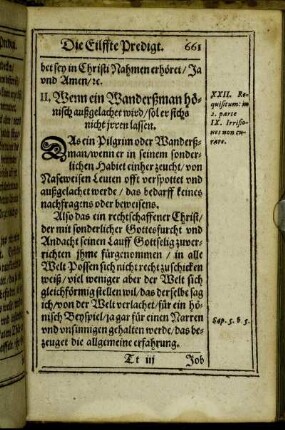 Die Eilffte Predigt. 661
bet sey in Christi Nahmen erhöret / Ja
vnd Amen / ꝛc.
II. Wenn ein Wanderßman hö-
nisch außgelachet wird / sol er sichs
nicht jrren lassen.
DAs ein Pilgrim oder Wanderß-
man / wenn er in seinem sonder-
lichen Habiet einher zeucht / von
Naseweisen Leuten offt verspottet vnd
außgelachet werde / das bedarff keines
nachfragens oder beweisens.
Also das ein rechtschaffener Christ /
der mit sonderlicher Gottesfurcht vnd
Andacht seinen Lauff Gottselig zuver-
richten jhme fürgenommen / in alle
Welt Possen sich nicht recht zu schicken
weiß / viel weniger aber der Welt sich
gleichförmig stellen wil / das derselbe sag
ich / von der Welt verlachet / für ein hö-
nisch Beyspiel / ja gar für einen Narren
vnd vnsinnigen gehalten werde / das be-
zeuget die allgemeine erfahrung.
Tt iij Job
XXII. Re-
quisitum: in
2. parte
IX. Irrisio-
nes non cu-
rare.
Sap. 5. v. 3.